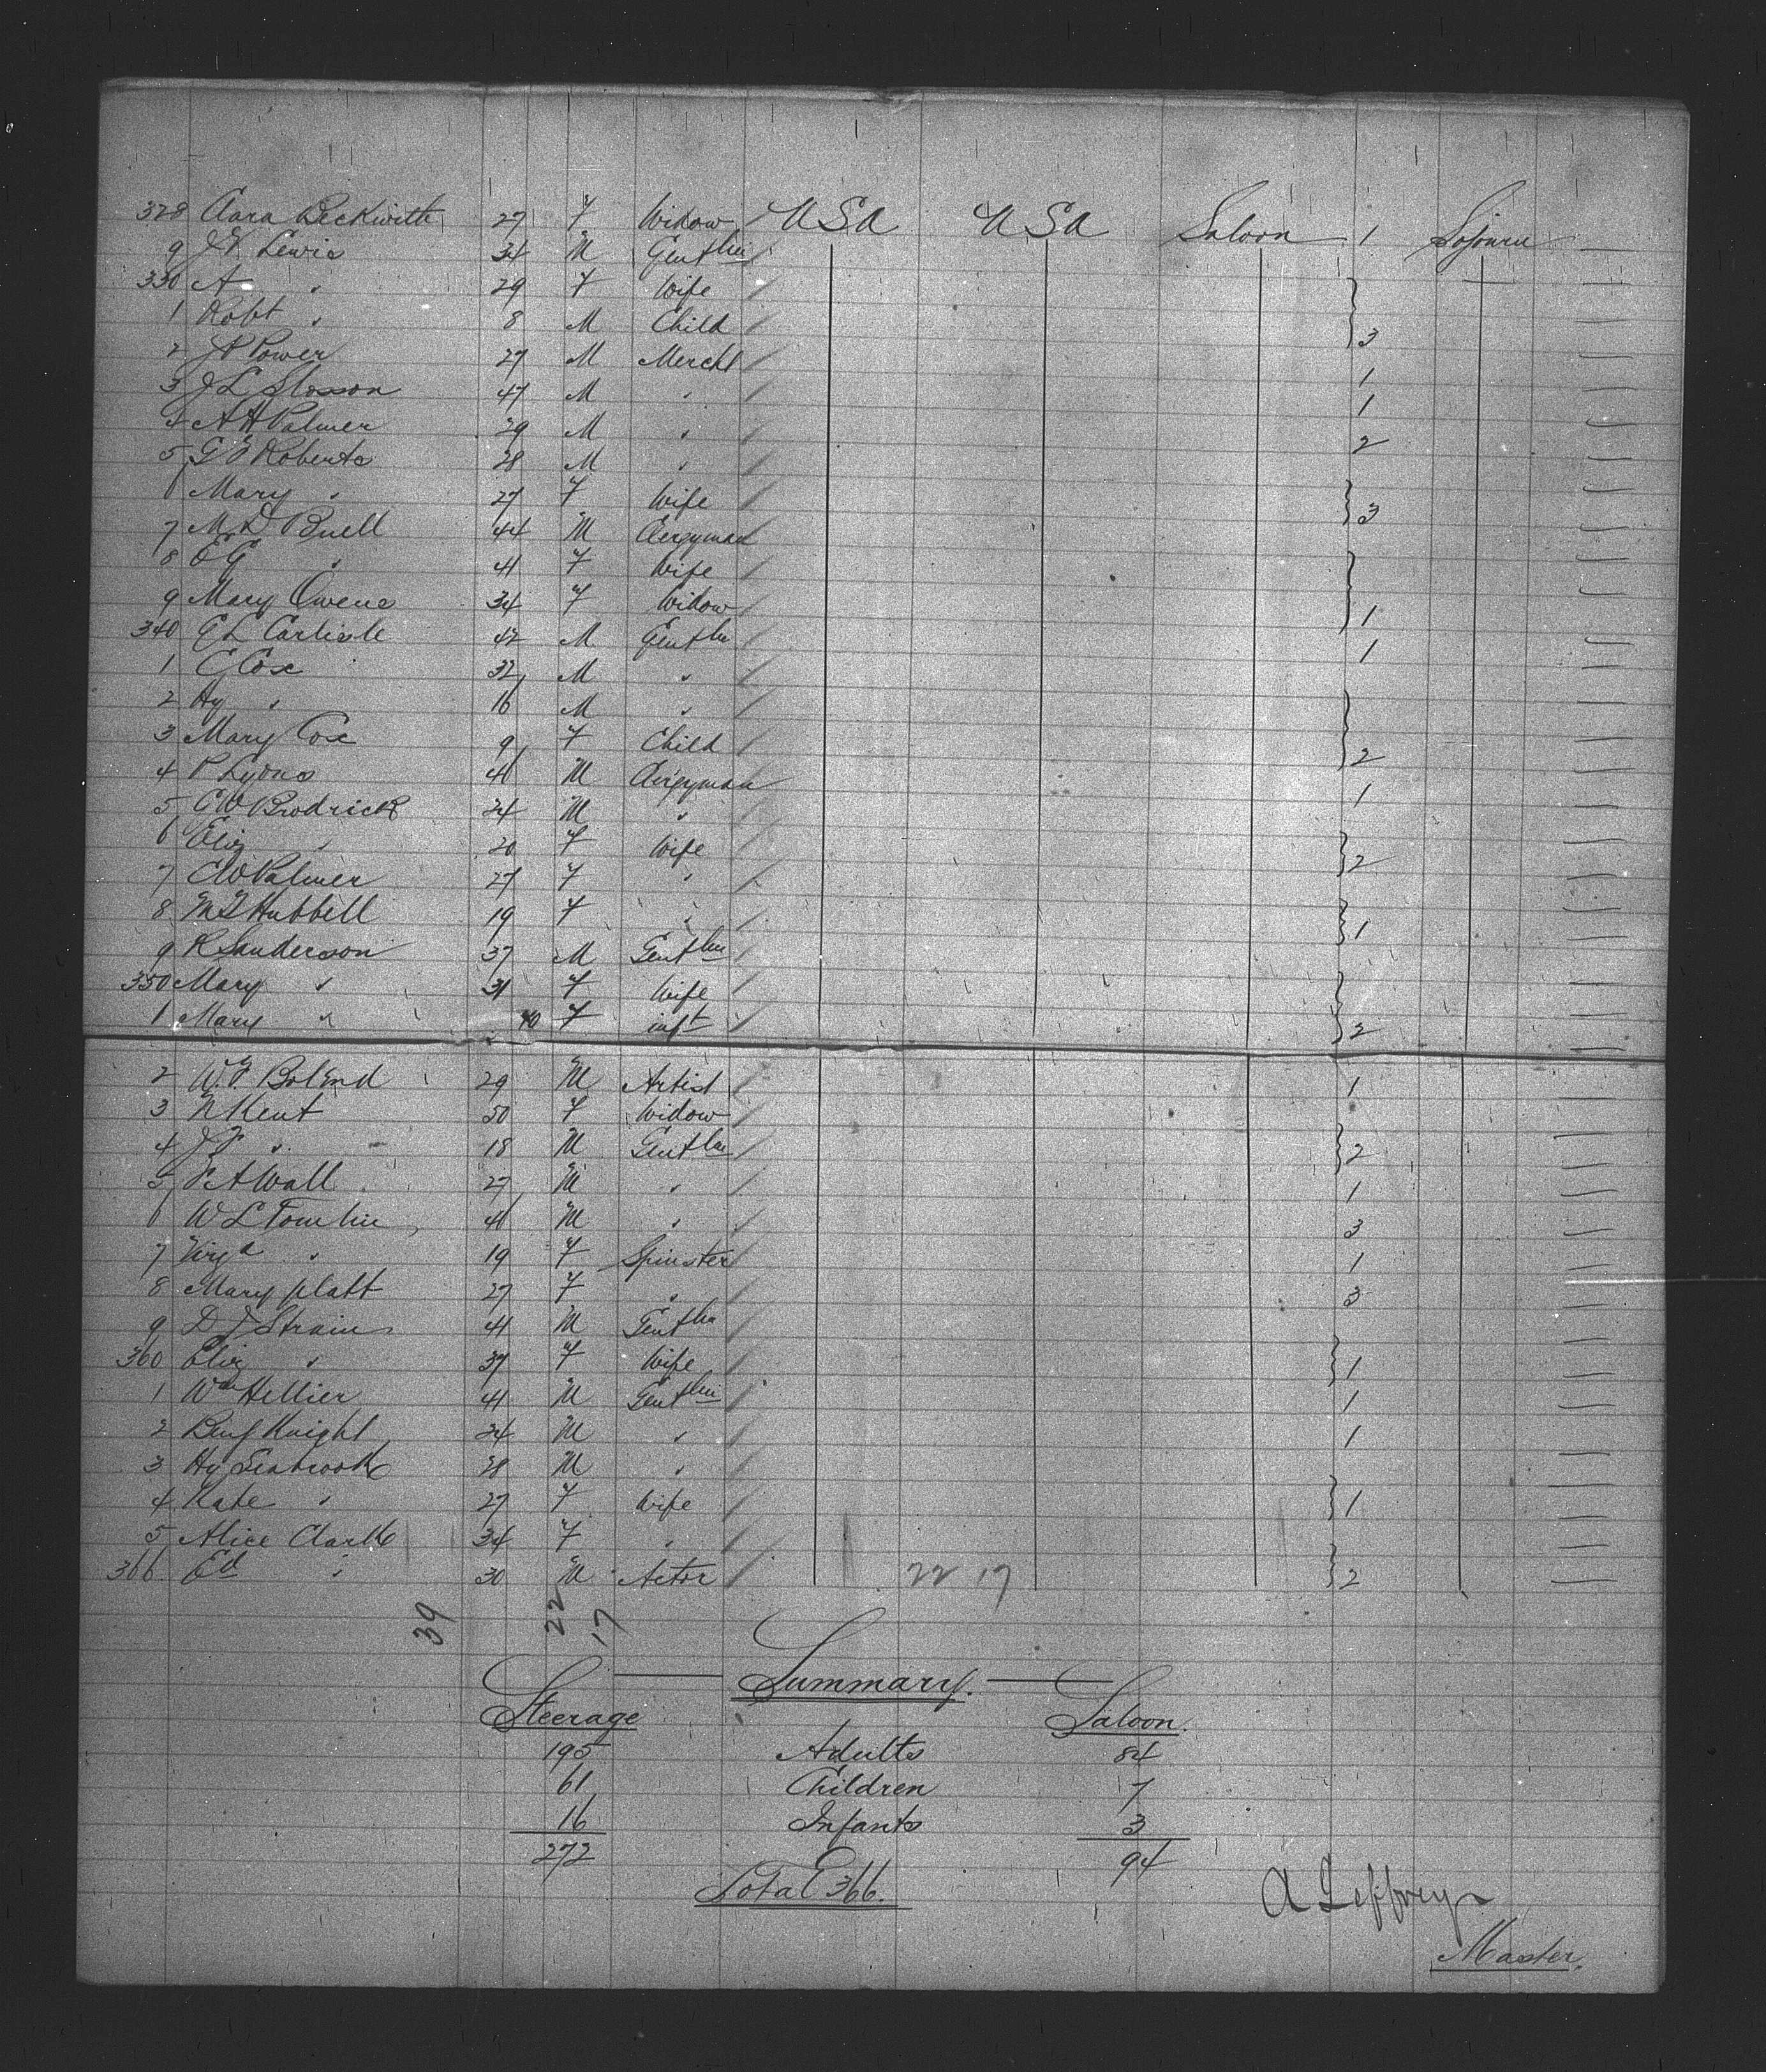 328 Clara Beckwith 27 F Widow USA USA Saloon 1 Sojourn
9 J V Lewis 34 M Gentln
330 A " 29 F Wife
1 Robt " 8 M Child 3
2 J P Power 27 M Mercht 1
3 J L Slosson 47 M " 1
4 A H Palmer 29 M " 2
5 G E Roberts 28 M "
6 Mary " 27 F Wife 3
7 M D Buell 44 M Clergyman
8 E G " 41 F Wife
9 Mary Owens 34 F Widow 1
340 E L Carlisle 42 M Gentln 1
1 C Cox 32 M "
2 Hy " 16 M "
3 Mary Cox 9 F Child 2
4 P Lyons 41 M Clergyman 1
5 C W Brodrick 24 M "
6 Eliz " 20 F Wife 2
7 C W Palmer 27 F "
8 M G Hubbell 19 F " 1
9 R Sanderson 37 M Gentln
350 Mary " 31 F Wife
1 Mary " 10 F inft 2
2 W. F Bolend 29 M Artist 1
3 N Kent 50 F Widow
4 J F " 18 M Gentln 2
5 P A Wall 27 M " 1
6 W L Tomlin 41 M " 3
7 Virga " 19 F Spinster 1
8 Mary Platt 27 F " 3
9 D J Strain 41 M Gentln
360 Eliz " 37 F Wife 1
1 Wm Hellier 41 M Gentln 1
2 Benj Knight 24 M " 1
3 Hy Seabrook 28 M "
4 Kate " 27 F Wife 1
5 Alice Clark 34 F "
366 Ed " 30 M Actor 22 17 2
39 22 17
Summary.
Steerage Saloon.
195 Adults 84
61 Children 7
16 Infants 3
272 94
Total 366.
A Jeffrey
Master.